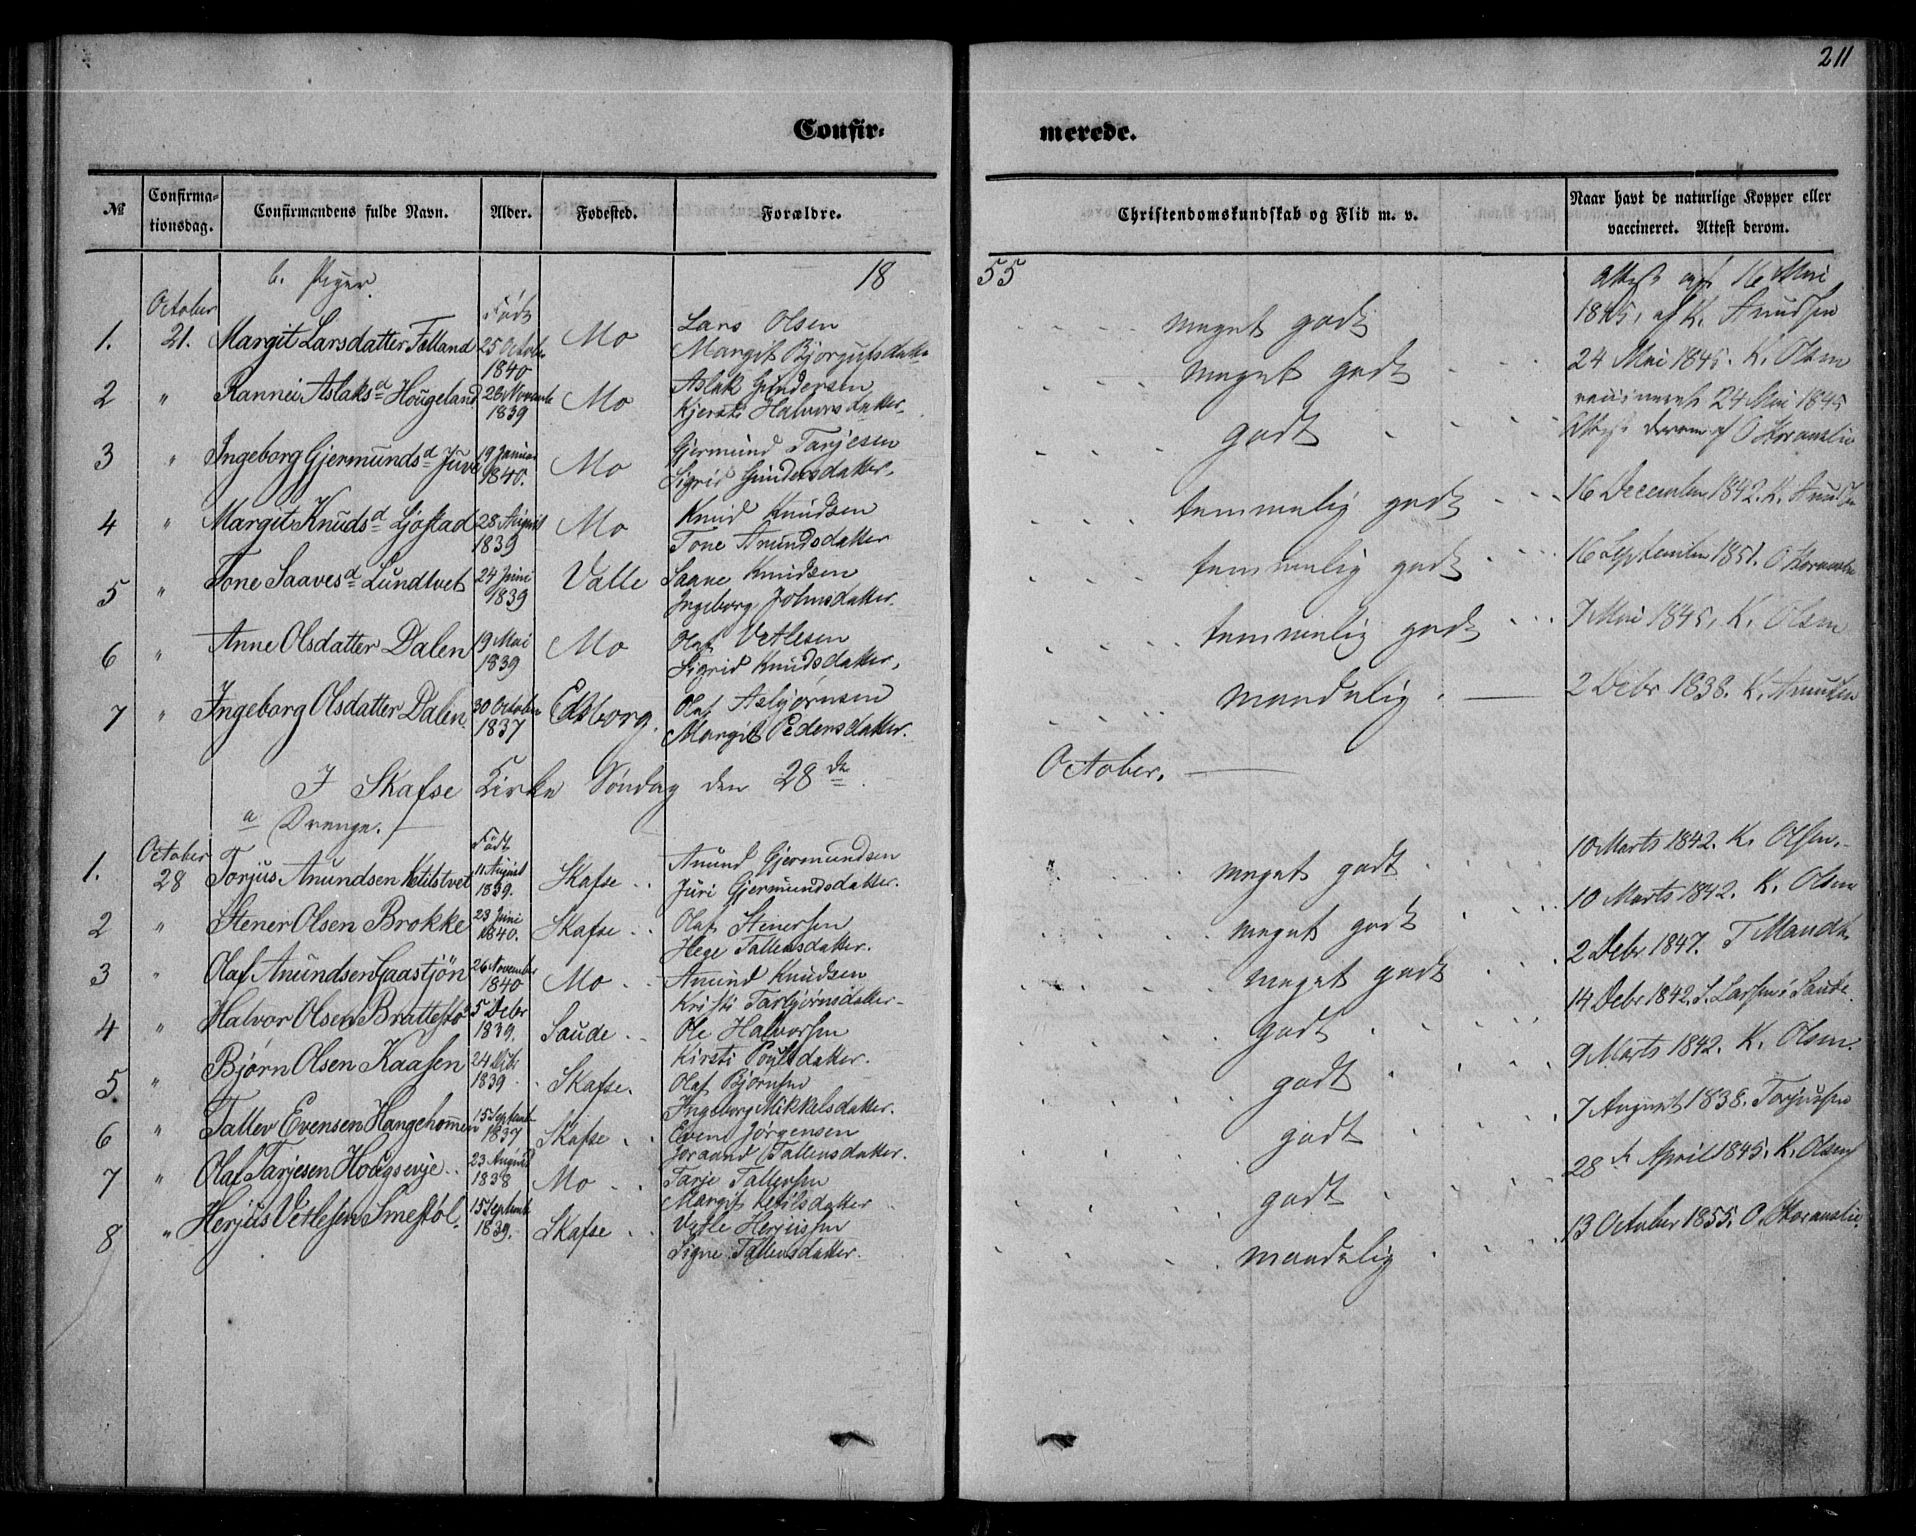 211
Confir- merede.
№ Confirma-tionsdag. Confirmandens fulde Navn. Alder. Fødested. Forældre. Christendomskundskab og Flid m. v. Naar havt de naturlige Kopper eller vaccineret. Attest derom.
b. Piger. 18 55
1. October 21. Margit Larsdatter Født 25 October 1840 Mo Lars Olsen meget godt Attest af 16 Mai 1845, af K. Anudsen
Margit
2 " Rannei Aslaksd Hougeland 1839 Mo Aslak Gundersen meget godt 24 Mai 1845. K. Olsen
Kjersti Halvorsdatter.
3 " Ingeborg Gjermundsd Juve 19 Januar 1840. Mo Gjermund Tarjesen godt vaccineret 24 Mai 1845
Sigrid Gundersdatter. Attest derom af O
4 " Margit Knudsd 28 August 1839 Mo Knud Knudsen temmelig godt 16 December 1842. K. Anudsen
Tone Anundsdatter
5 " Tone Saavesd Lundtvet 24 Juni 1839 Valle Saave Knudsen temmelig godt 16 September 1851. O
Ingeborg Johnsdatter.
6 " Anne Olsdatter Dalen 19 Mai 1839 Mo Olaf Vetlesen temmelig godt 7 Mai 1845, K. Olsen
Sigrid Knudsdatter.
7 " Ingeborg Olsdatter Dalen 30 October 1837 Eidsborg. Olaf Asbjørnsen maadelig. 2 Debr 1838. K. Anudsen
Margit Pedersdatter.
I Skafse Kirke Søndag den 28de October.
a Drenge.
1. October 28 Torjus Anundsen Ketilstvet Født 11 August 1839. Skafse Anund Gjermundsen meget godt 10 Marts 1842. K. Olsen.
Juri Gjermundsdatter.
2 " Stener Olsen Brokke 23 Juni 1840. Skafse Olaf Steinersen meget godt 10 Marts 1842. K. Olsen
Hege Tallevsdatter.
3 " Olaf Anundsen 26 November 1840 Mo Anund Knudsen meget godt 2 Debr 1847. T Mandt.
Kristi Tarbjørnsdatter
4 " Halvor Olsen 5 Debr 1839. Saude Ole Halvorsen godt 14 Debr 1842. S. Larsen i Saude.
Kirsti
5 " Bjørn Olsen Kaasen 24 1839 Skafse. Olaf Bjørnsen godt 9 Marts 1842. K. Olsen.
Ingeborg Mikkelsdatter.
6 " Tallev Evensen 15 September 1837 Skafse Even Jørgensen godt 7 August 1838. Torjussen
Joraand Tallevsdatter.
7 " Olaf Tarjesen 23 August 1838 Mo Tarje Tallevsen godt 28de April 1845. K. Olsen
Margit Ketilsdatter
8 " Herjus Vetlesen Smestøl. 15 September 1839. Skafse Vetle Herjusen maadelig 13 October 1855. O
Signe Tallevsdatter.